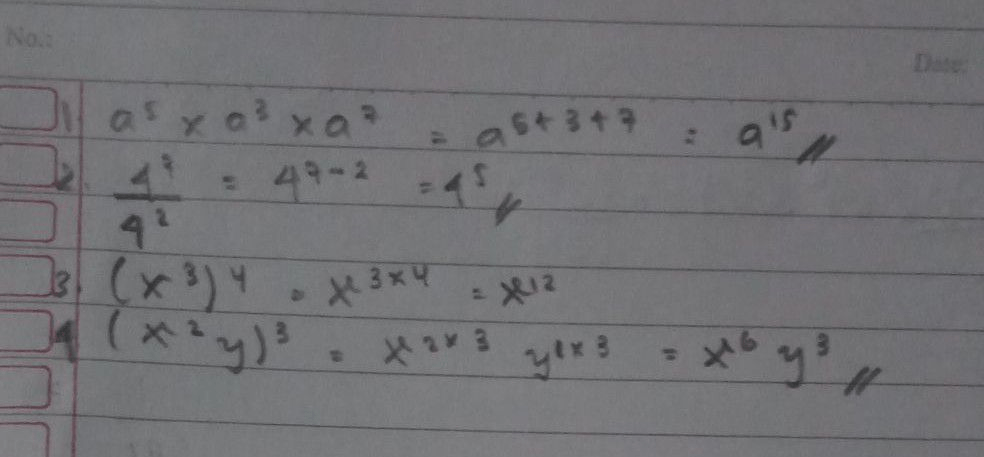 No.:
Date:
1 a⁵ x a³ x a⁷ = a⁵⁺³⁺⁷ = a¹⁵
2. 4⁷/4² = 4⁷⁻² = 4⁵
3. (x³)⁴ = x³ˣ⁴ = x¹²
4 (x²y)³ = x²ˣ³ y¹ˣ³ = x⁶ y³